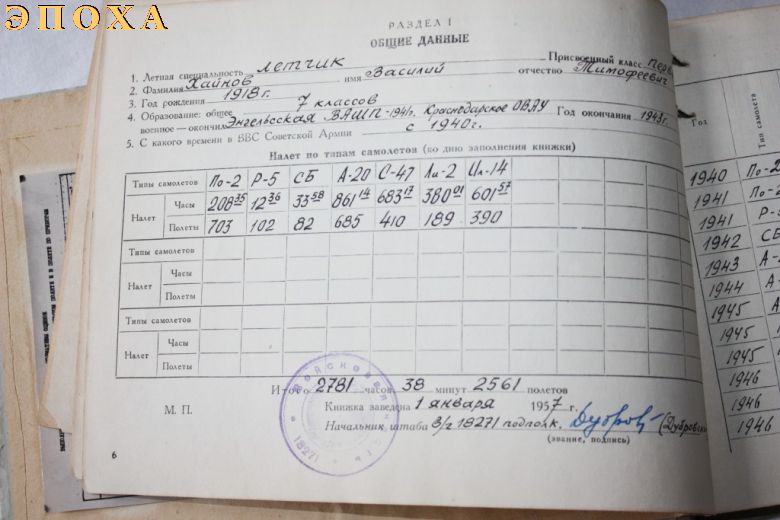 ЭПОХА
РАЗДЕЛ I
ОБЩИЕ ДАННЫЕ
1. Летная специальность летчик Присвоенный класс перв
2. Фамилия Хайнов имя Василий отчество Тимофеевич
3. Год рождения 1918 г.
4. Образование: общее 7 классов
военное — окончил Энгельсская ВАШП - 1941г. Краснодарское ОВАУ Год окончания 1943 г.
5. С какого времени в ВВС Советской Армии с 1940 г.
Налет по типам самолетов (ко дню заполнения книжки)
Типы самолетов По-2 Р-5 СБ А-20 С-47 Ли-2 Ил-14
Налет Часы 208 35 12 36 33 58 861 14 683 17 380 01 601 57
Полеты 703 102 82 685 410 189 390
Типы самолетов
Налет Часы
Полеты
Типы самолетов
Налет Часы
Полеты
Итого 2781 часов 38 минут 2561 полетов
М. П. Книжка заведена 1 января 1957 г.
Начальник штаба в/ч 18271 подполк. Дубров (Дубровски
(звание, подпись)
18271
6
Год Тип самолета
1940 По-2
1941 По-
1941 Р-
1942 СБ
1943 А-
1944 А-
1945
1945
1945
1946
1946
1946